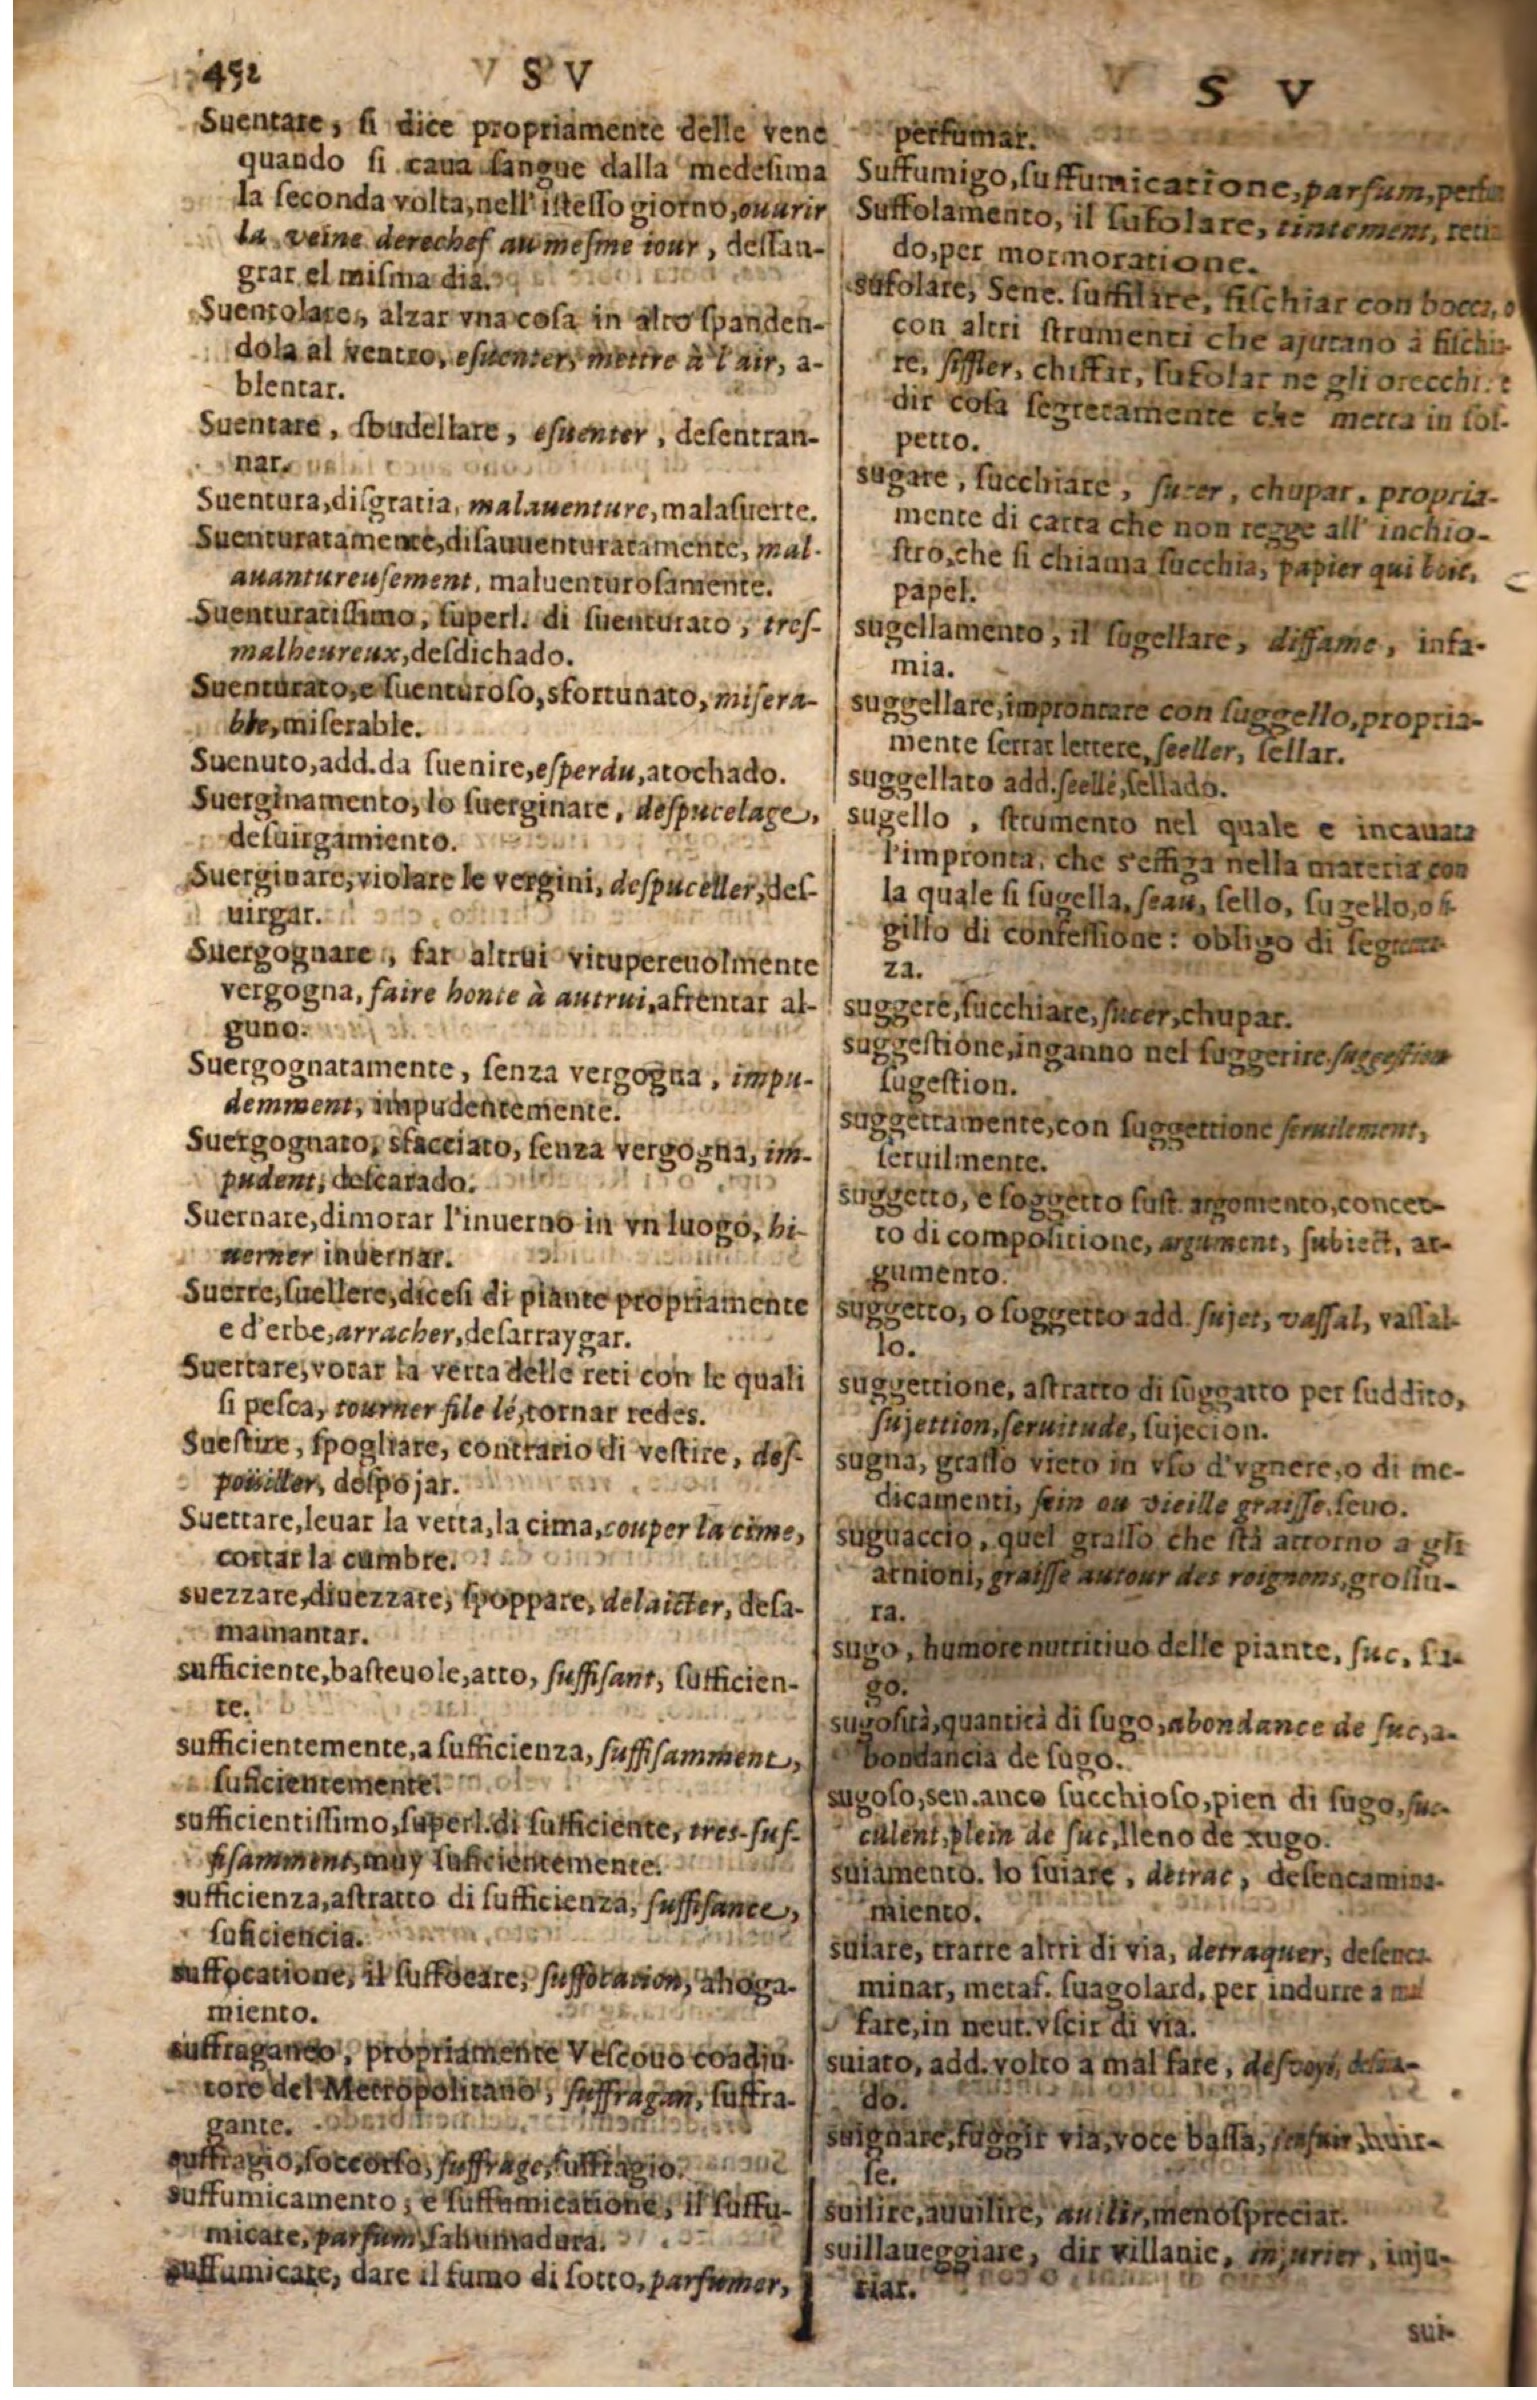 452 S V
S V
Suentare, ſi dice propriamente delle vene
quando ſi caua ſangue dalla medeſima
la ſeconda volta, nell' iſteſſo giorno, ouurir
la veine derechef au meſme iour, deſſan-
grar el miſma dia.
Suentolare, alzar vna coſa in alto ſpanden-
dola al vento, eſuenter, mettre à l'air, a-
blentar.
Suentare, ſbudellare, eſuenter, deſentran-
nar.
Suentura, diſgratia, malauenture, malaſuerte.
Suenturatamente, diſauuenturatamente, mal-
auantureuſement, maluenturoſamente.
Suenturatiſſimo, ſuperl. di ſuenturato, treſ-
malheureux, deſdichado.
Suenturato, e ſuenturoſo, sfortunato, miſera-
ble, miſerable.
Suenuto, add. da ſuenire, eſperdu, atochado.
Suerginamento, lo ſuerginare, deſpucelage,
deſuirgamiento.
Suerginare, violare le vergini, deſpuceller, deſ-
uirgar.
Suergognare, far altrui vitupereuolmente
vergogna, faire honte à autrui, afrentar al-
guno.
Suergognatamente, ſenza vergogna, impu-
demment, impudentemente.
Suergognato, sfacciato, ſenza vergogna, im-
pudent, deſcarado.
Suernare, dimorar l'inuerno in vn luogo, hi-
uerner inuernar.
Suerre, ſuellere, diceſi di piante propriamente
e d'erbe, arracher, deſarraygar.
Suertare, votar la verta delle reti con le quali
ſi peſca, tourner file lé, tornar redes.
Sueſtire, ſpogliare, contrario di veſtire, deſ-
poüiller, deſpojar.
Suettare, leuar la vetta, la cima, couper la cime,
cortar la cumbre.
suezzare, diuezzare, ſpoppare, delaicter, deſa-
mamantar.
sufficiente, baſteuole, atto, ſuffiſant, ſufficien-
te.
sufficientemente, a ſufficienza, ſuffiſamment,
ſuficientemente.
sufficientiſſimo, ſuperl. di ſufficiente, tres-ſuf-
fiſamment, muy ſuficientemente.
sufficienza, aſtratto di ſufficienza, ſuffiſance,
ſuficiencia.
suffocatione, il ſuffocare, ſuffocation, ahoga-
miento.
suffraganeo, propriamente Veſcouo coadiu-
tore del Metropolitano, ſuffragan, ſuffra-
gante.
suffragio, ſoccorſo, ſuffrage, ſuffragio.
suffumicamento, e ſuffumicatione, il ſuffu-
micare, parfum, ſahumadura.
suffumicare, dare il fumo di ſotto, parfumer,
perfumar.
Suffumigo, ſuffumicatione, parfum,
Suffolamento, il ſufolare, tintement,
do, per mormoratione.
sufolare, Sene. ſuffilare, fiſchiar con bocca, o
con altri ſtrumenti che ajutano à fiſchia-
re, ſiffler, chiflar, ſufolar ne gli orecchi:
dir coſa ſegretamente che metta in ſoſ-
petto.
sugare, ſucchiare, ſucer, chupar, propria-
mente di carta che non regge all' inchio-
ſtro, che ſi chiama ſucchia, papier qui boit,
papel.
sugellamento, il ſugellare, diffame, infa-
mia.
suggellare, improntare con ſuggello, propria-
mente ſerrar lettere, ſeeller, ſellar.
suggellato add. ſeellé, ſellado.
sugello, ſtrumento nel quale e incauata
l'impronta, che s'effiga nella materia con
la quale ſi ſugella, ſeau, ſello, ſugello, o ſi-
gillo di confeſſione: obligo di
za.
suggere, ſucchiare, ſucer, chupar.
suggeſtione, inganno nel ſuggerire ſuggeſtion
ſugeſtion.
suggettamente, con ſuggettione ſeruilement,
ſeruilmente.
suggetto, e ſoggetto ſuſt. argomento, concet-
to di compoſitione, argument, ſubiect, ar-
gumento.
suggetto, o ſoggetto add. ſujet, vaſſal, vaſſal-
lo.
suggettione, aſtratto di ſuggatto per ſuddito,
ſujettion, ſeruitude, ſujecion.
sugna, graſſo vieto in vſo d'vgnere, o di me-
dicamenti, ſein ou vieille graiſſe. ſeuo.
sugnaccio, quel graſſo che ſtà attorno a gli
arnioni, graiſſe autour des roignons, groſſu-
ra.
sugo, humore nutritiuo delle piante, ſuc, ſu-
go.
sugoſità, quantità di ſugo, abondance de ſuc, a-
bondancia de ſugo.
sugoſo, sen. anco ſucchioſo, pien di ſugo, ſuc-
culent, plein de ſuc, lleno de xugo.
suiamento. lo ſuiare, detrac, deſencamina-
miento.
suiare, trarre altri di via, detraquer, deſenca-
minar, metaf. ſuagolard, per indurre a mal
fare, in neut. vſcir di via.
suiato, add. volto a mal fare,
do.
suignare, fuggir via, voce baſſa,
ſe.
suilire, auuilire, auilir, menoſpreciar.
suillaueggiare, dir villanie, injurier, inju-
riar.
sui-